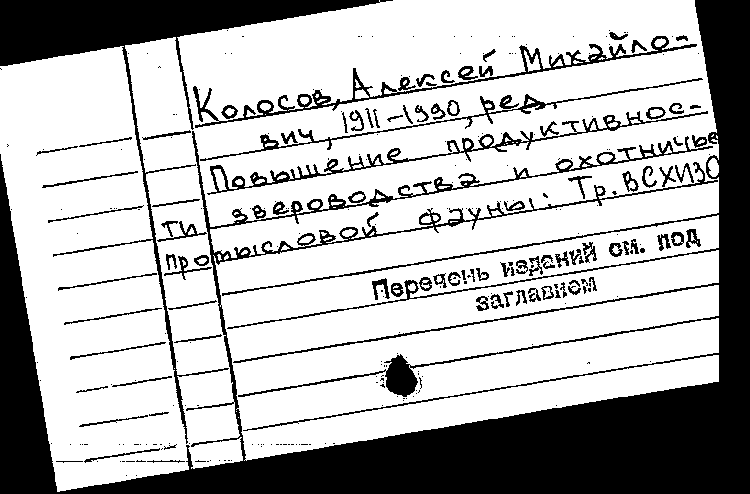 Колосов, Алексей Михайло-
вич, 1911-1990, ред.
Повышение продуктивнос-
ти звероводства и охотничье
промысловой фауны: Тр. ВСХИЗО
Перечень изданий см. под
заглавием